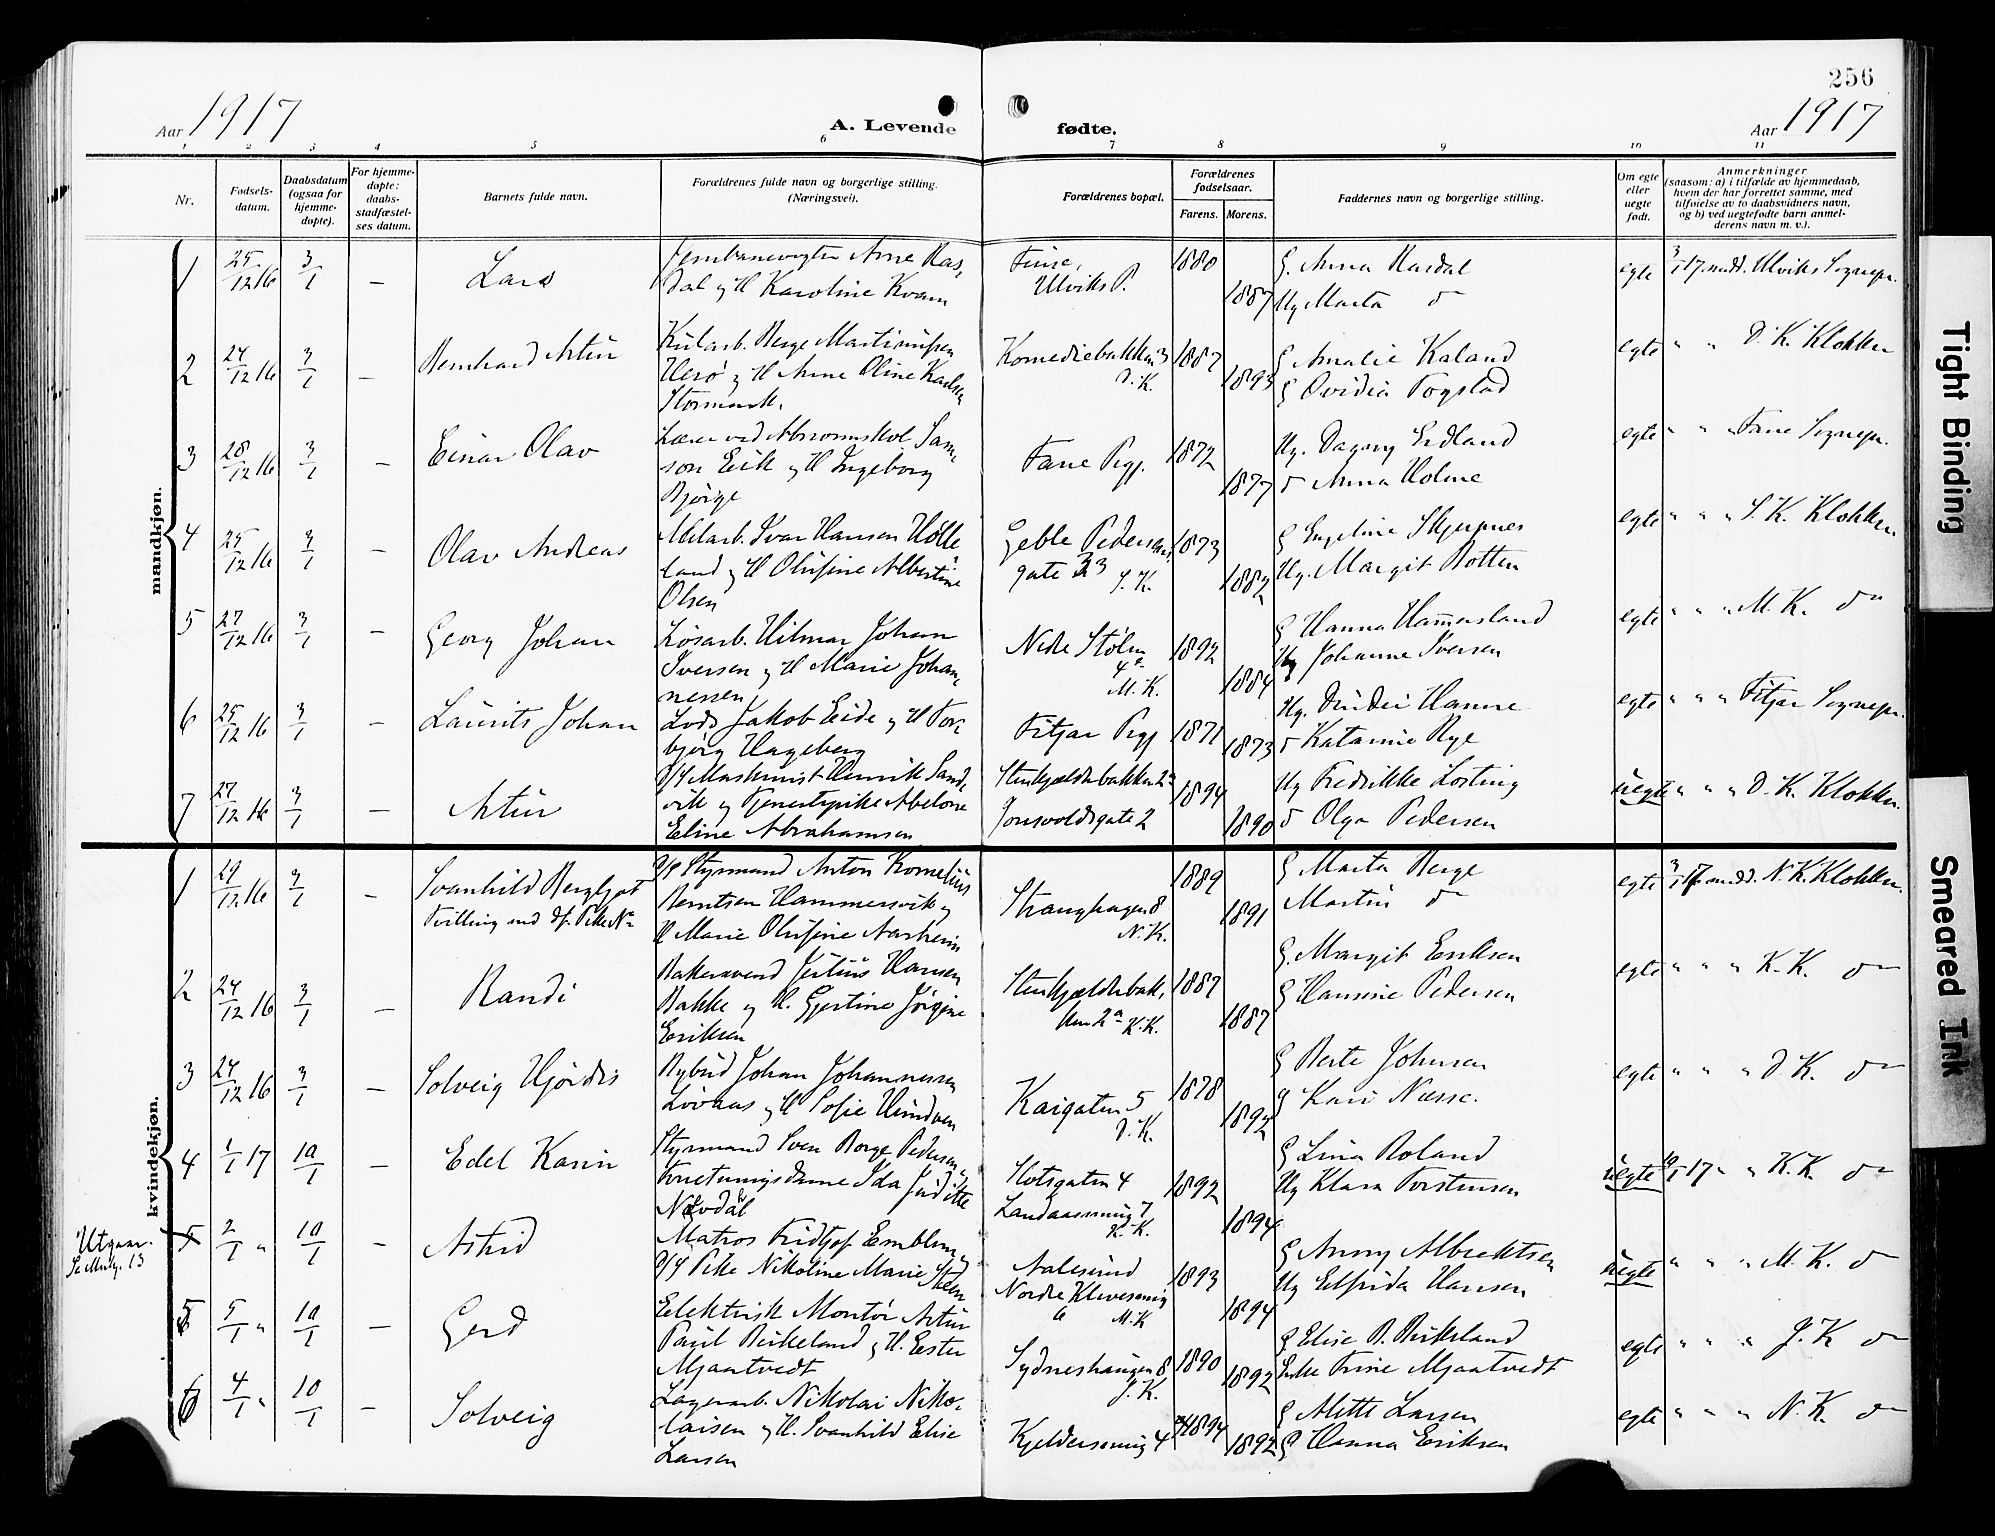 256
Aar 1917
A. Levende
fødte.
Aar 1917
1 2 3 4 5 6 7 8 9 10 11
Nr.
Fødsels-
datum.
Daabsdatum
(ogsaa for
hjemme-
døpte).
For hjemme-
døpte:
daabs-
stadfæstel-
ses datum.
Barnets fulde navn.
Forældrenes fulde navn og borgerlige stilling.
(Næringsvei).
Forældrenes bopæl.
Forældrenes
fødselsaar.
Farens. Morens.
Faddernes navn og borgerlige stilling.
Om egte
eller
uegte
født.
Anmerkninger
(saasom: a) i tilfælde av hjemmedaab,
hvem der har forrettet samme, med
tilføielse av to daabsvidners navn,
og b) ved uegtefødte barn anmel-
derens navn m. v.).
mandkjøn.
1 25/12 16 3/1 — Lars
Jernbanevogter Arne Ras,
dal og H Karoline Kvam
Finse,
Ulviks P.
1880 1887
G. Anna Rasdal
Ug Marta do
egte 3/1 17 medd. Ulviks Sognepr.
2 24/12 16 3/1 — Bernhard Artur
Kularb. Berge Martinussen
Herø og H Anne Oline Karlsen
Stormark.
Komediebakken 3
D.K.
1887 1893
G Amalie Kaland
G Ovidia Fogstad
egte " " D. K. Klokker
3 28/12 16 3/1 — Einar Olav
Lærer ved Abnormskol Sam,
son Eik og H Ingeborg
Bjørge
Fane Pgj.
1872 1877
Ug. Dagny Erdland
do Anna Holme
egte " " " Fane Sognepr.
4 25/12 16 3/1 — Olav Andreas
Milarb. Ivar Hansen Hølle
land og H Olufine Albertine
Olsen
Geble Pedersens
gate 33 J.K.
1873 1882
G Engeline Skjerpnes
Ug. Margit Rotten
egte " " " J. K. Klokker
5 27/12 16 3/1 — Georg Johan
Løsarb. Hilmar Johan
Iversen og H Marie Johan,
nessen
Nedre Stølen
4a
M.K.
1892 1884
G Hanna Hammersland
Ug Johanne Iversen
egte " " " M. K. do
6 25/12 16 3/1 — Laurits Johan
Lods Jakob Eide og H Tor,
bjørg Hageberg
Fitjar Pgj
1871 1873
Ug. Hanne
do Katarine Rye
egte " " " Fitjar Sognepr.
7 27/12 16 3/1 — Artur
Maskinist Henrik Sand,
vik og Tjenestepike Abelone
Eline Abrahamsen
Stenkjælderbakken 2a
Jonsvoldsgate 2
1894 1890
Ug Fredrikke Losting
do Olga Pedersen
uegte " " " D. K. Klokker.
kvindekjøn.
1 29/12 16 3/1 — Svanhild Bergljot
Tvilling med df. Pike No
Styrmand Anton Kornelius
Berntsen Hammersvik og
H Marie Olufine Aasheim
Stranghagen 8
N.K.
1889 1891
G Marta Berge
Martin do
egte 3/1 17 medd. N.K. Klokker.
2 24/12 16 3/1 — Randi
Bakersvend Julius Hansen
Bakke og H. Gjertine Jørgine
Eriksen
Stenkjælderbak,
ken 2a K.K.
1887 1887
G. Margit Eriksen
G Hansine Pedersen
egte " " " K.K. do
3 24/12 16 3/1 — Solveig Hjørdis
Bybud Johan Johannessen
Løvaas og H Sofie Hindøen
Kaigaten 5
D.K.
1878 1892
G Berte Johnsen
G Kari Næsse.
egte " " " D.K. do
4 1/1 17 10/1 — Edel Karin
Styrmand Sven Borge Pedersen og
Forretningsdame Ida Juditte
Nøvdal
Slotsgaten 4
Landaassmug 7
K.K.
1892 1894
G Lina Roland
Ug Klara Torstensen
uegte 10/1 17 " " K.K. do
Utgaar.
5 2/1 " 10/1 — Astrid
Matros Fridtjof Emblem og
Pike Nikoline Marie Steen
Aalesund
Nordre Klivesmug
6 M.K
1893 1894
G Anny Albrektsen
Ug Elfrida Hansen
uegte " " " M.K. do
5 5/1 " 10/1 — Gerd
Elektrisk Montør Artur
Paul Birkeland og H. Ester
Mjaatvedt
Sydneshaugen 8
J.K.
1890 1892
G Elise B. Birkeland
Enke Trine Mjaatvedt
egte " " " J.K do
6 4/1 " 10/1 — Solveig
Lagerarb. Nikolai Niko-
laisen og H. Svanhild Elise
Larsen
Kjeldersmug 4
1894 1892
G Alette Larsen
G Hanna Eriksen
egte " " " N.K. do
Tight Binding
Smeared Ink